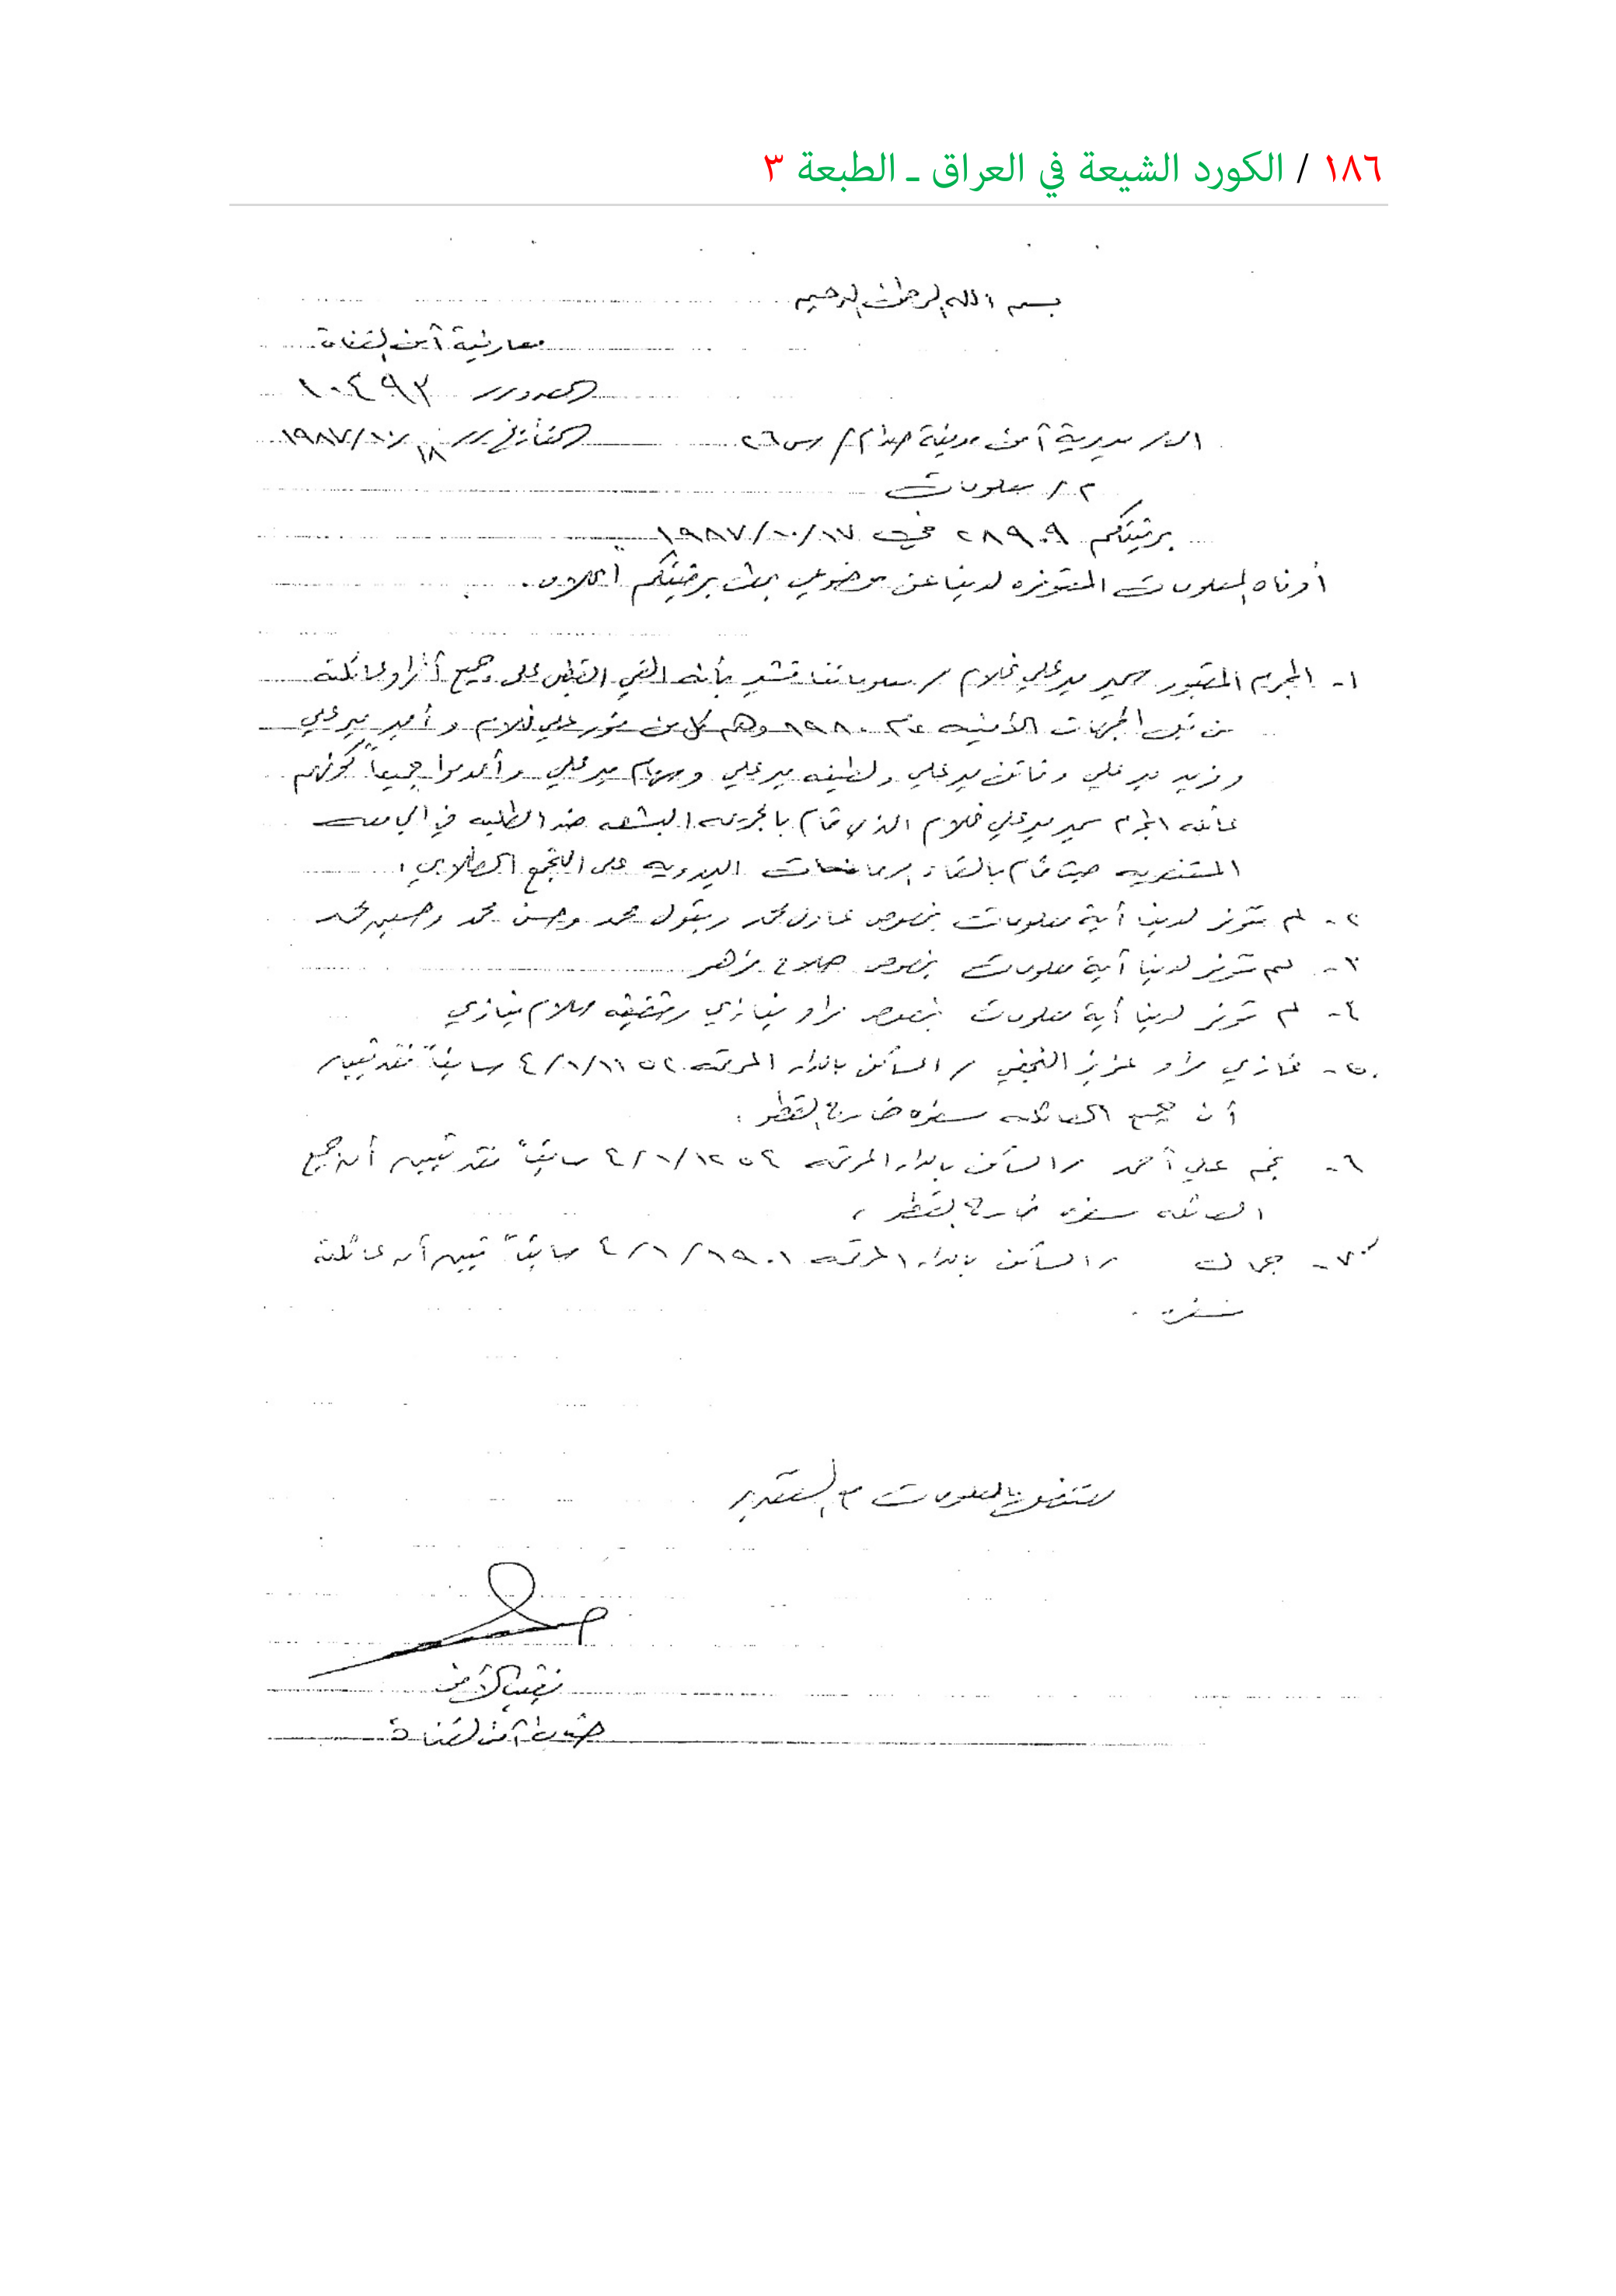 ١٨٦ / الكورد الشيعة في العراق ـ الطبعة ٣
بسم الله الرحمن الرحيم
معاونية أمن القناة
العدد / ١٠٤٩٢
الى / مديرية أمن مدينة صدام / س ٢٦
التأريخ / ١٨ / ١٠ / ١٩٨٧
م / معلومات
برقيتكم ٢٨٩٠٩ في ١٧ / ١٠ / ١٩٨٧
أدناه المعلومات المتوفره لدينا عن موضوعي بحث برقيتكم اعلاه .
١- المجرم المقبور سمير مير علي غلام / معلوماتنا تشير بأنه القي القبض على جميع أفراد عائلته
من قبل الجهات الأمنيه عام ١٩٨٠ وهم كل من علي غلام و أمير مير علي
و مير علي و فاتن مير علي ولطيفه مير علي وسهام مير علي وأعدموا جميعاً كونهم
عائله المجرم سمير مير علي غلام الذي قام بالجريمه البشعه ضد الطلبه في الجامعه
المستنصريه حيث قام بالقاء الرمانات اليدويه على التجمع الطلابي .
٢- لم تتوفر لدينا أية معلومات بخصوص عادل محمد وبتول محمد وحسن محمد وحسين محمد
٣- لم تتوفر لدينا أية معلومات بخصوص صلاح مزهر
٤- لم تتوفر لدينا أية معلومات بخصوص مراد نيازي وشقيقه سلام نيازي
٥- غازي مراد عزيز / الساكن بالدار المرقمه ٤/١/١١٥٢ سابقاً فقد تبين
أن جميع العائله مسفره خارج القطر .
٦- نجم علي أحمد / الساكن بالدار المرقمه ٤/١/١٢٥٤ سابقاً فقد تبين أن جميع
العائله مسفره خارج القطر .
٧- / الساكن بالدار المرقمه ٤/١/١٩٠١ سابقاً تبين أن عائلته
مسفره .
للتفضل بالمعلومات مع التقدير
نقيب الأمن
ضابط أمن القناة